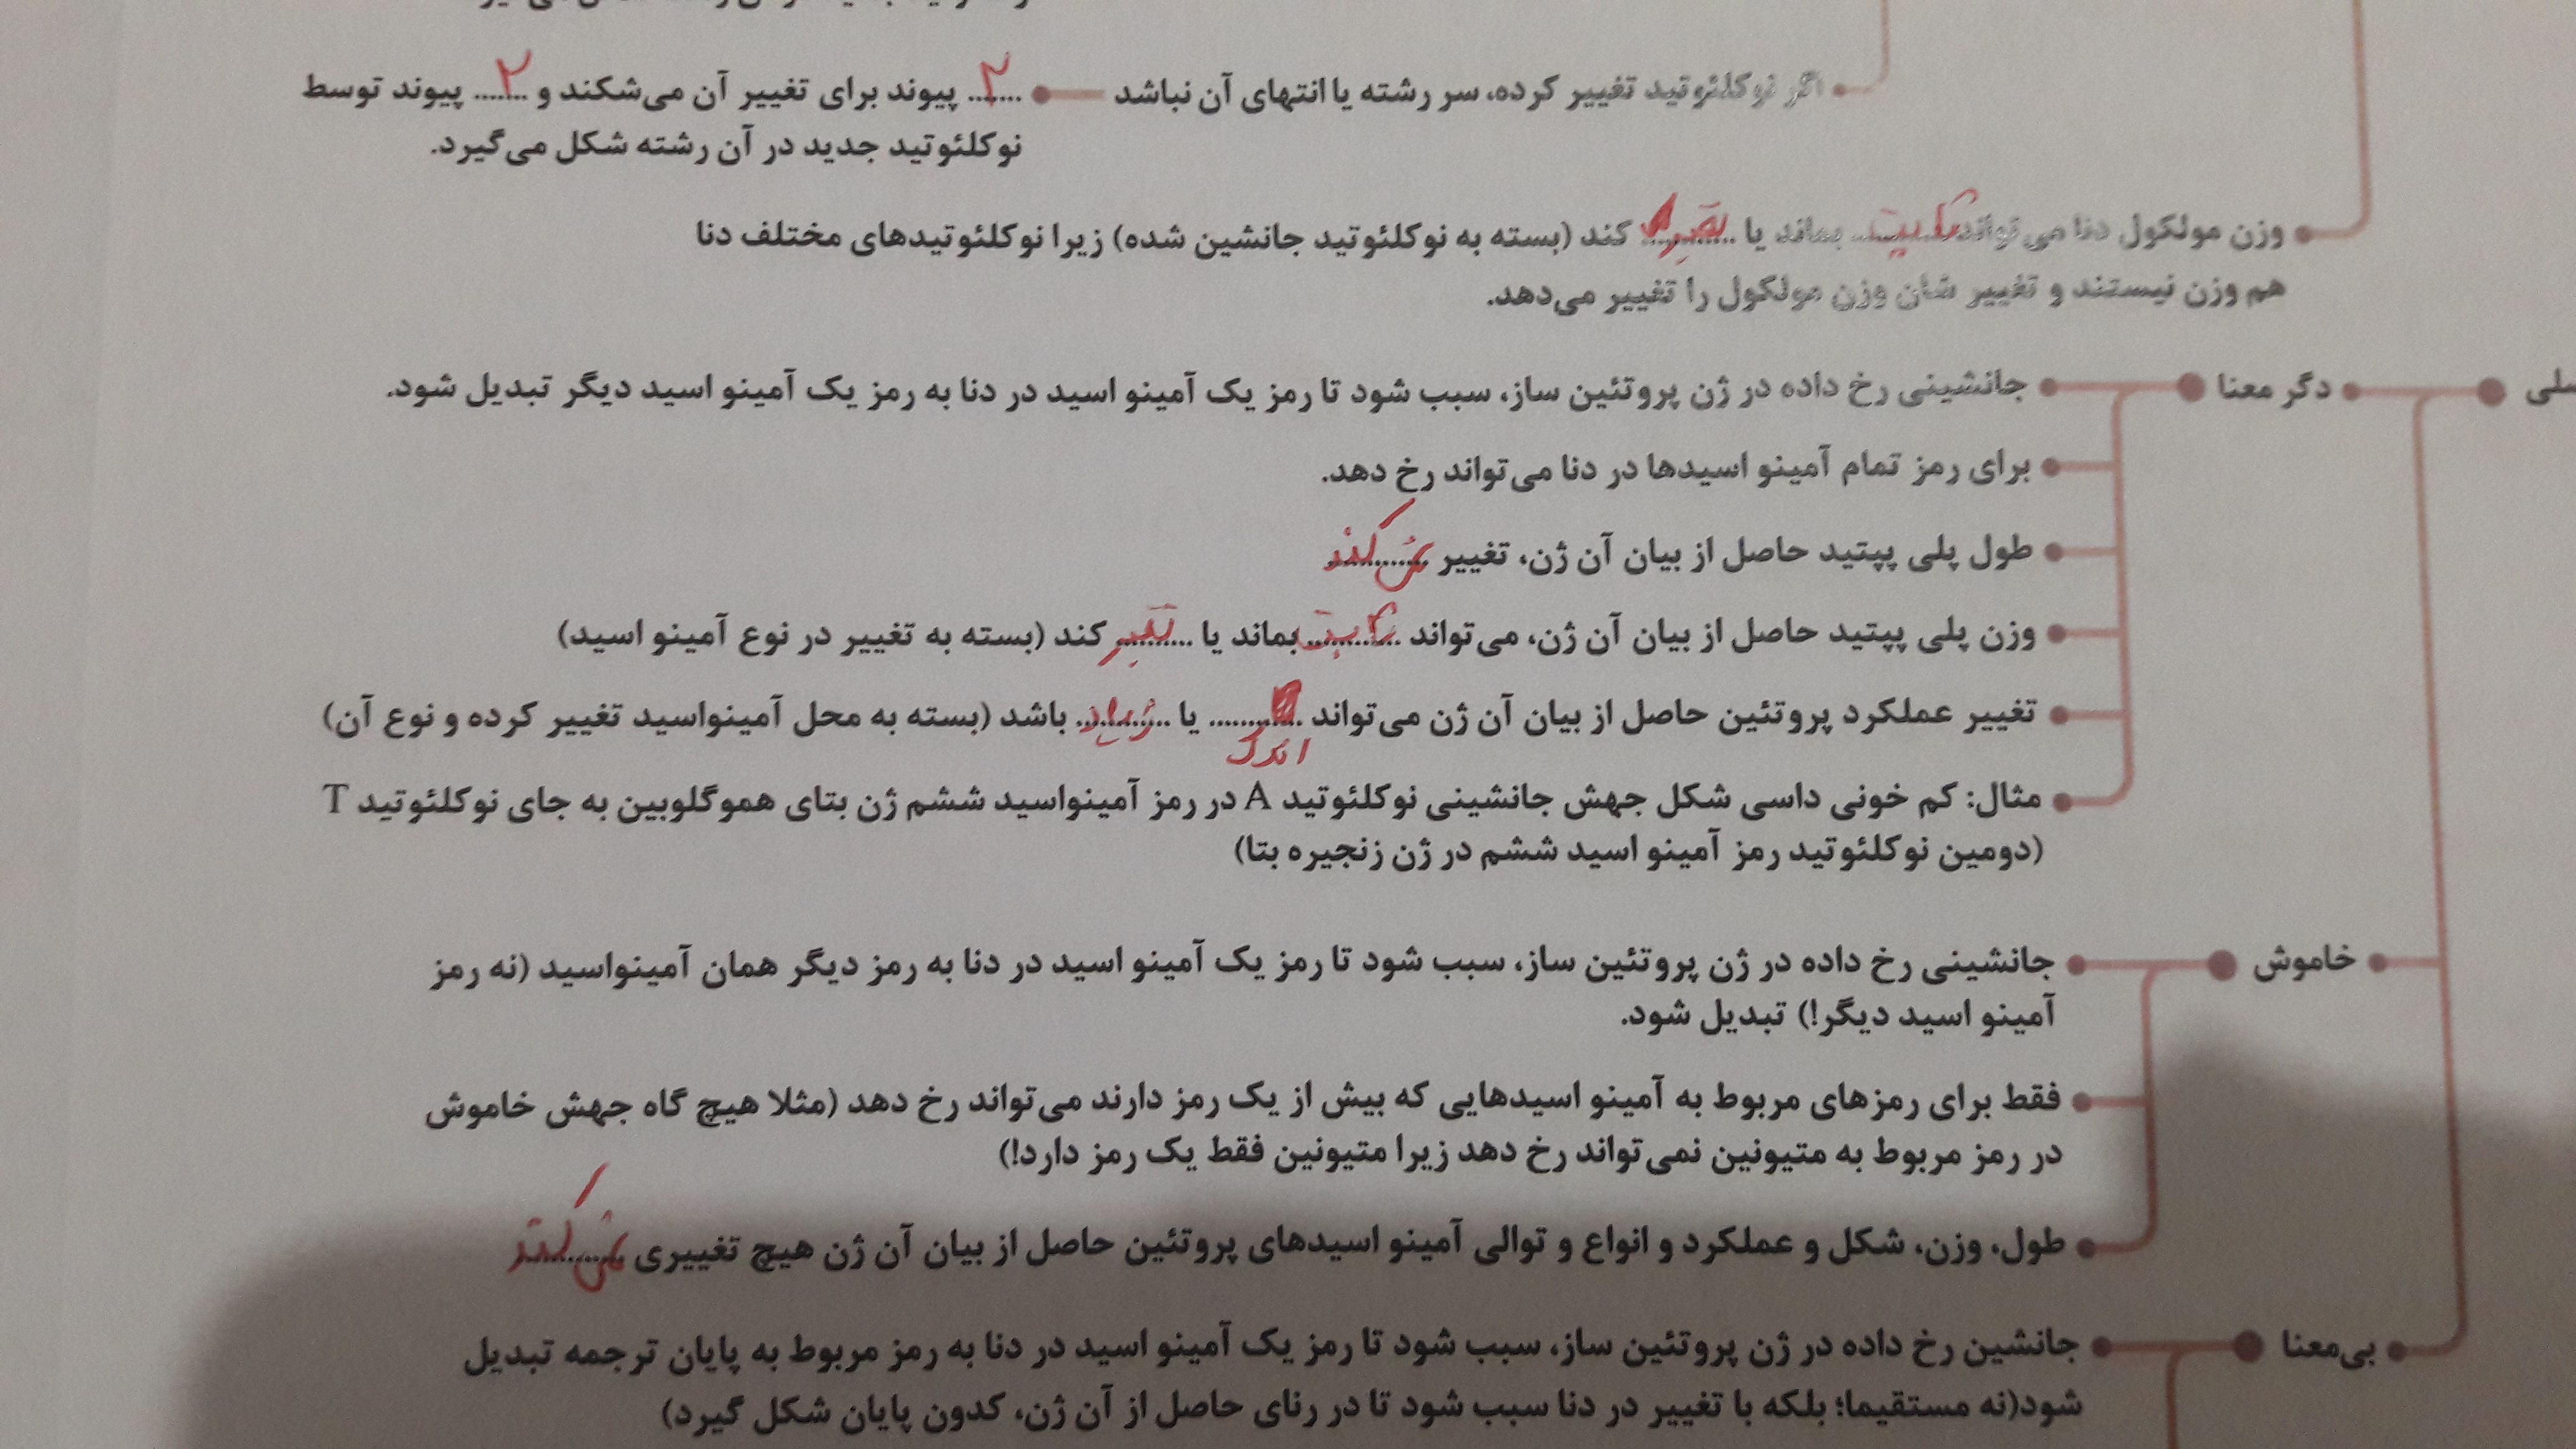 اگر نوکلئوتید تغییر کرده، سر رشته یا انتهای آن نباشد ۲ پیوند برای تغییر آن می‌شکند و ۲ پیوند توسط
نوکلئوتید جدید در آن رشته شکل می‌گیرد.
وزن مولکول دنا می تواند ثابت بماند یا تغییر کند (بسته به نوکلئوتید جانشین شده) زیرا نوکلئوتیدهای مختلف دنا
هم وزن نیستند و تغییر شان وزن مولکول را تغییر می‌دهد.
دگر معنا جانشینی رخ داده در ژن پروتئین ساز، سبب شود تا رمز یک آمینو اسید در دنا به رمز یک آمینو اسید دیگر تبدیل شود.
برای رمز تمام آمینو اسیدها در دنا می‌تواند رخ دهد.
طول پلی پپتید حاصل از بیان آن ژن، تغییر نمی‌کند
وزن پلی پپتید حاصل از بیان آن ژن، می‌تواند ثابت بماند یا تغییر کند (بسته به تغییر در نوع آمینو اسید)
تغییر عملکرد پروتئین حاصل از بیان آن ژن می‌تواند اندک یا زیاد باشد (بسته به محل آمینواسید تغییر کرده و نوع آن)
مثال: کم خونی داسی شکل جهش جانشینی نوکلئوتید A در رمز آمینواسید ششم ژن بتای هموگلوبین به جای نوکلئوتید T
(دومین نوکلئوتید رمز آمینو اسید ششم در ژن زنجیره بتا)
خاموش جانشینی رخ داده در ژن پروتئین ساز، سبب شود تا رمز یک آمینو اسید در دنا به رمز دیگر همان آمینواسید (نه رمز
آمینو اسید دیگر!) تبدیل شود.
فقط برای رمزهای مربوط به آمینو اسیدهایی که بیش از یک رمز دارند می‌تواند رخ دهد (مثلا هیچ گاه جهش خاموش
در رمز مربوط به متیونین نمی‌تواند رخ دهد زیرا متیونین فقط یک رمز دارد!)
طول، وزن، شکل و عملکرد و انواع و توالی آمینو اسیدهای پروتئین حاصل از بیان آن ژن هیچ تغییری نمی‌کند
بی‌معنا جانشین رخ داده در ژن پروتئین ساز، سبب شود تا رمز یک آمینو اسید در دنا به رمز مربوط به پایان ترجمه تبدیل
شود(نه مستقیما؛ بلکه با تغییر در دنا سبب شود تا در رنای حاصل از آن ژن، کدون پایان شکل گیرد)